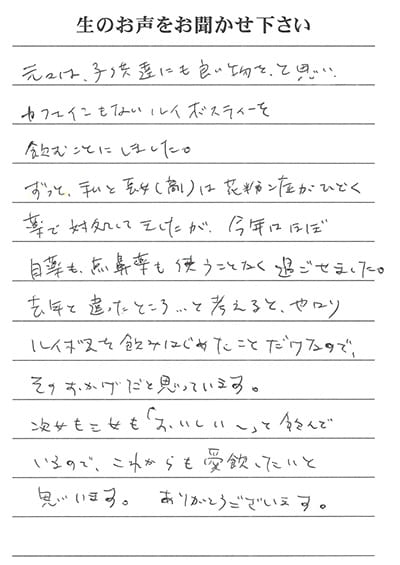 生のお声をお聞かせ下さい
元々は、子供達にも良い物を、と思い、
カフェインもないルイボスティーを
飲むことにしました。
ずっと、私と長女(高1)は花粉症がひどく
薬で対処してましたが、今年はほぼ
目薬も、点鼻薬も使うことなく過ごせました。
去年と違ったところ…と考えると、やはり
ルイボスを飲みはじめたことだけなので、
そのおかげだと思っています。
次女も三女も「おいしい〜」と飲んで
いるので、これからも愛飲したいと
思います。 ありがとうございます。